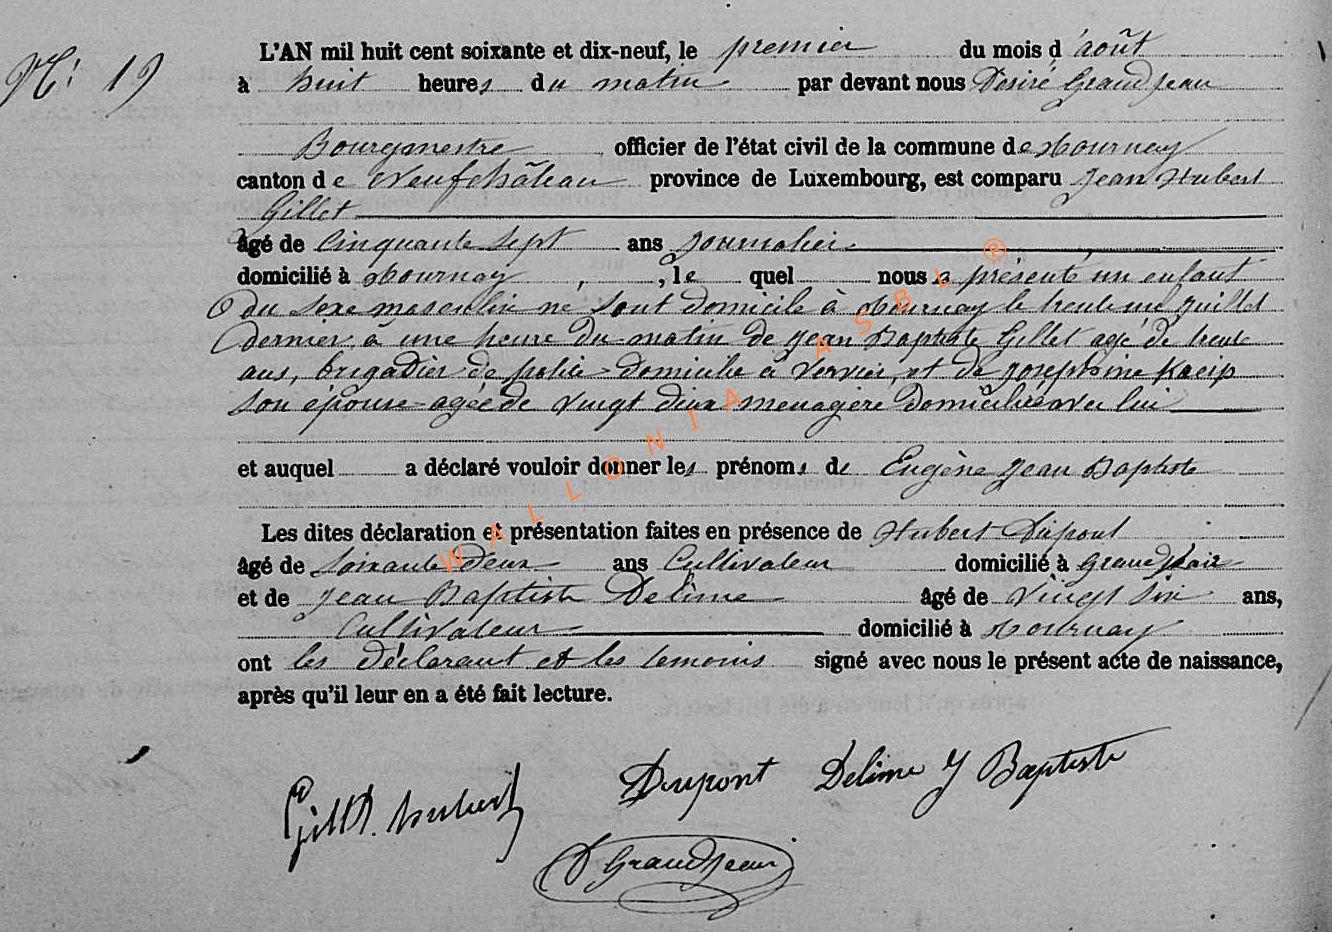 N° 19
L'AN mil huit cent soixante et dix-neuf, le premier du mois d'août
à huit heures du matin par devant nous Désiré Grandjean
Bourgmestre, officier de l'état civil de la commune de Tournay
canton de Neufchâteau province de Luxembourg, est comparu Jean Hubert
Gillet
âgé de Cinquante Sept ans journalier
domicilié à Tournay, le quel nous a présenté un enfant
du sexe masculin né sont domicile à Tournay le trente un juillet
dernier, à une heure du matin de Jean Baptiste Gillet agé de trente
ans, brigadier de police domicilié à Vervier, et de Joséphine Kaeip
son épouse agée de vingt deux ménagère domiciliée avec lui
et auquel a déclaré vouloir donner les prénoms de Eugène Jean Baptiste
Les dites déclaration et présentation faites en présence de Hubert Dupont
âgé de soixante deux ans Cultivateur domicilié à Grandvoir
et de Jean Baptiste Delime âgé de Vingt six ans,
Cultivateur domicilié à Tournay
ont les déclarant et les temoins signé avec nous le présent acte de naissance,
après qu'il leur en a été fait lecture.
Gillet. hubert Dupont Delime J Baptiste
D Grandjean
WALLONIA ASBL ®